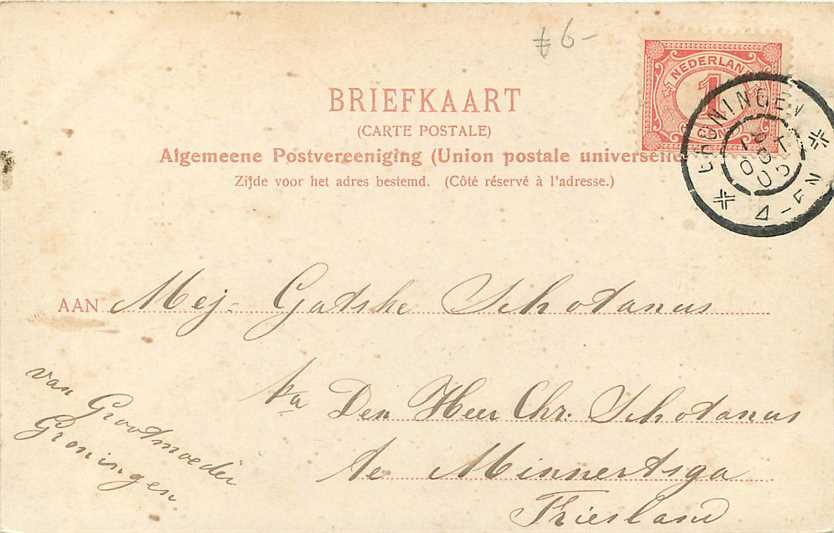 6-
NEDERLAND
1
CENT
GRONINGEN
4-5 N
BRIEFKAART
(CARTE POSTALE)
Algemeene Postvereeniging (Union postale universelle
Zijde voor het adres bestemd. (Côté réservé à l'adresse.)
AAN Mej. Gatske Schotanus
p/a Den Heer Chr. Schotanus
te Minnertsga
Friesland
van Grootmoeder
Groningen